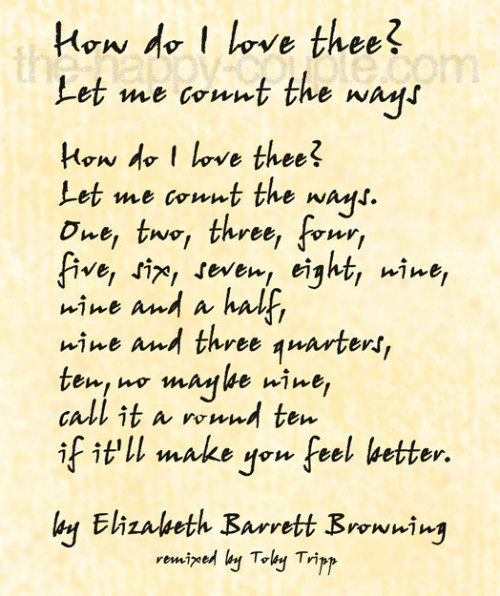 How do I love thee?
the-happy-couple.com
Let me count the ways
How do I love thee?
Let me count the ways.
One, two, three, four,
five, six, seven, eight, nine,
nine and a half,
nine and three quarters,
ten, no maybe nine,
call it a round ten
if it'll make you feel better.
by Elizabeth Barrett Browning
remixed by Toby Tripp